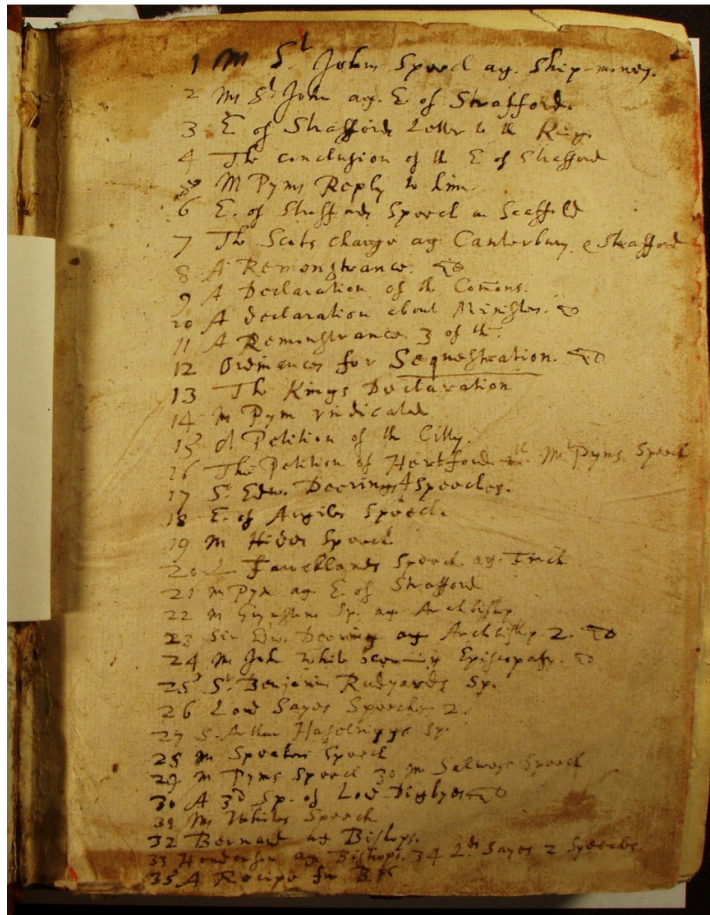 1 M St John Speech ag. Ship-money.
2 Mr St John ag. E of Strafford.
3 E of Strafford Letter to th King.
4 The conclusion of th E of Strafford
5 M Pyms Reply to him.
6 E. of Straffords Speech on Scaffold
7 The Scots charge ag Canterbury. & Strafford
8 A Remonstrance.
9 A Declaration of th Comons.
10 A declaration about Ministers.
11 A Remonstrance 3 of th
12 Ordinances for Sequestration.
13 The Kings Declaration
14 M Pym vindicated
15 A Petition of th Citty.
16 The Petition of Hertford Mr Pyms Speech
17 Sr Edw. Deerings 4 Speeches.
18 E. of Argiles Speech.
19 M Hides Speech
20 Fawcklands Speech ag. Finch
21 M Pym ag E. of Strafford
22 M Sp. ag Archbishp
23 Sir Edw. Deering ag Archbishp 2.
24 Mr Joh White Episcopasy.
25 Sr Benjamin Rudyards Sp.
26 Lord Sayes Speeches 2.
27 S. Arthur Haselrigge Sp.
28 M Speakers Speech
29 M Pyms Speech 30 M Salways Speech
30 A 3d Sp. of Lord Digbyes
31 Mr Whites Speech
32 Bernard ag Bishops.
33 Henderson ag Bishops. 34 Ld Sayes 2 Speeches.
35 A Recipe for BPs